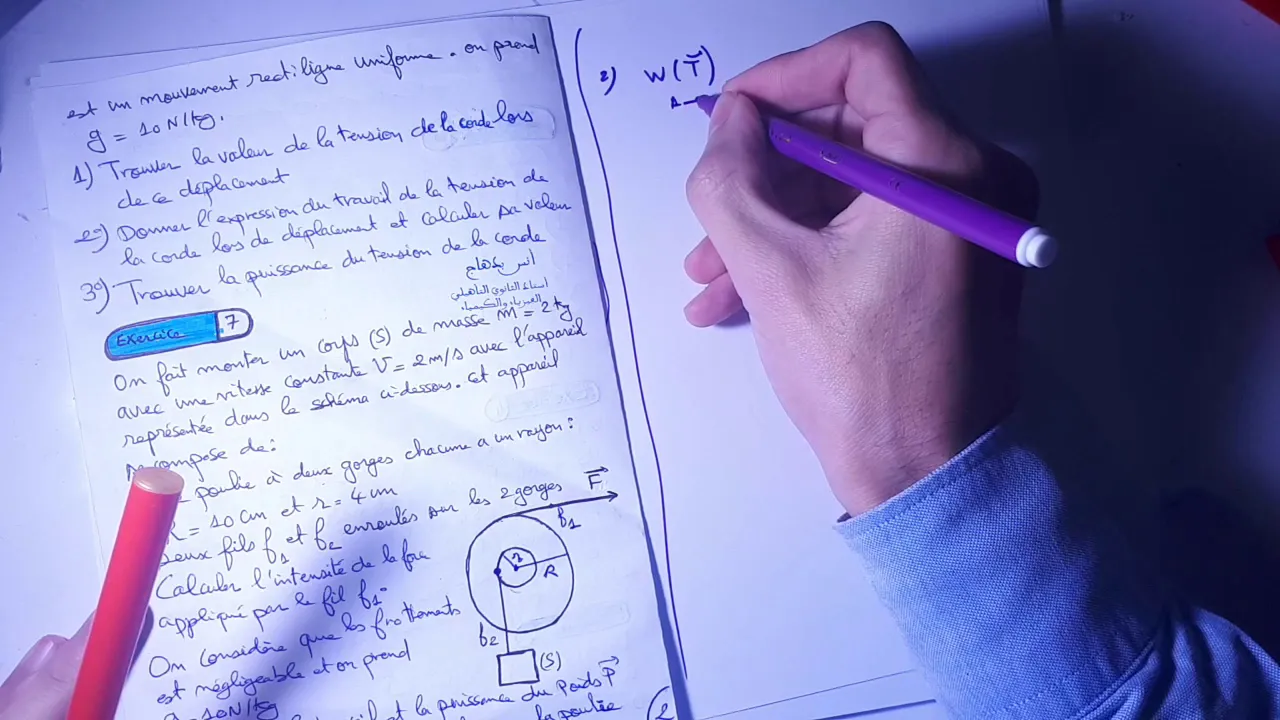 est un mouvement rectiligne uniforme. on prend
g = 10 N/kg.
1) Trouver la valeur de la tension de la corde lors
de ce déplacement
2°) Donner l'expression du travail de la tension de
la corde lors de déplacement et calculer sa valeur
3°) Trouver la puissance du tension de la corde
Exercice 7
On fait monter un corps (S) de masse m = 2 kg
avec une vitesse constante V = 2 m/s avec l'appareil
représentée dans le schéma ci-dessous. cet appareil
compose de:
poulie à deux gorges chacune a un rayon:
R = 10 cm et r = 4 cm
deux fils f1 et f2 enroulés sur les 2 gorges
Calculer l'intensité de la force
appliqué par le fil f1.
On considère que les frottements
est négligeable et on prend
g = 10N/kg
et la puissance du Poids P⃗
la poulie
F⃗
f1
r
R
f2
(S)
2
2) W(T⃗)
A